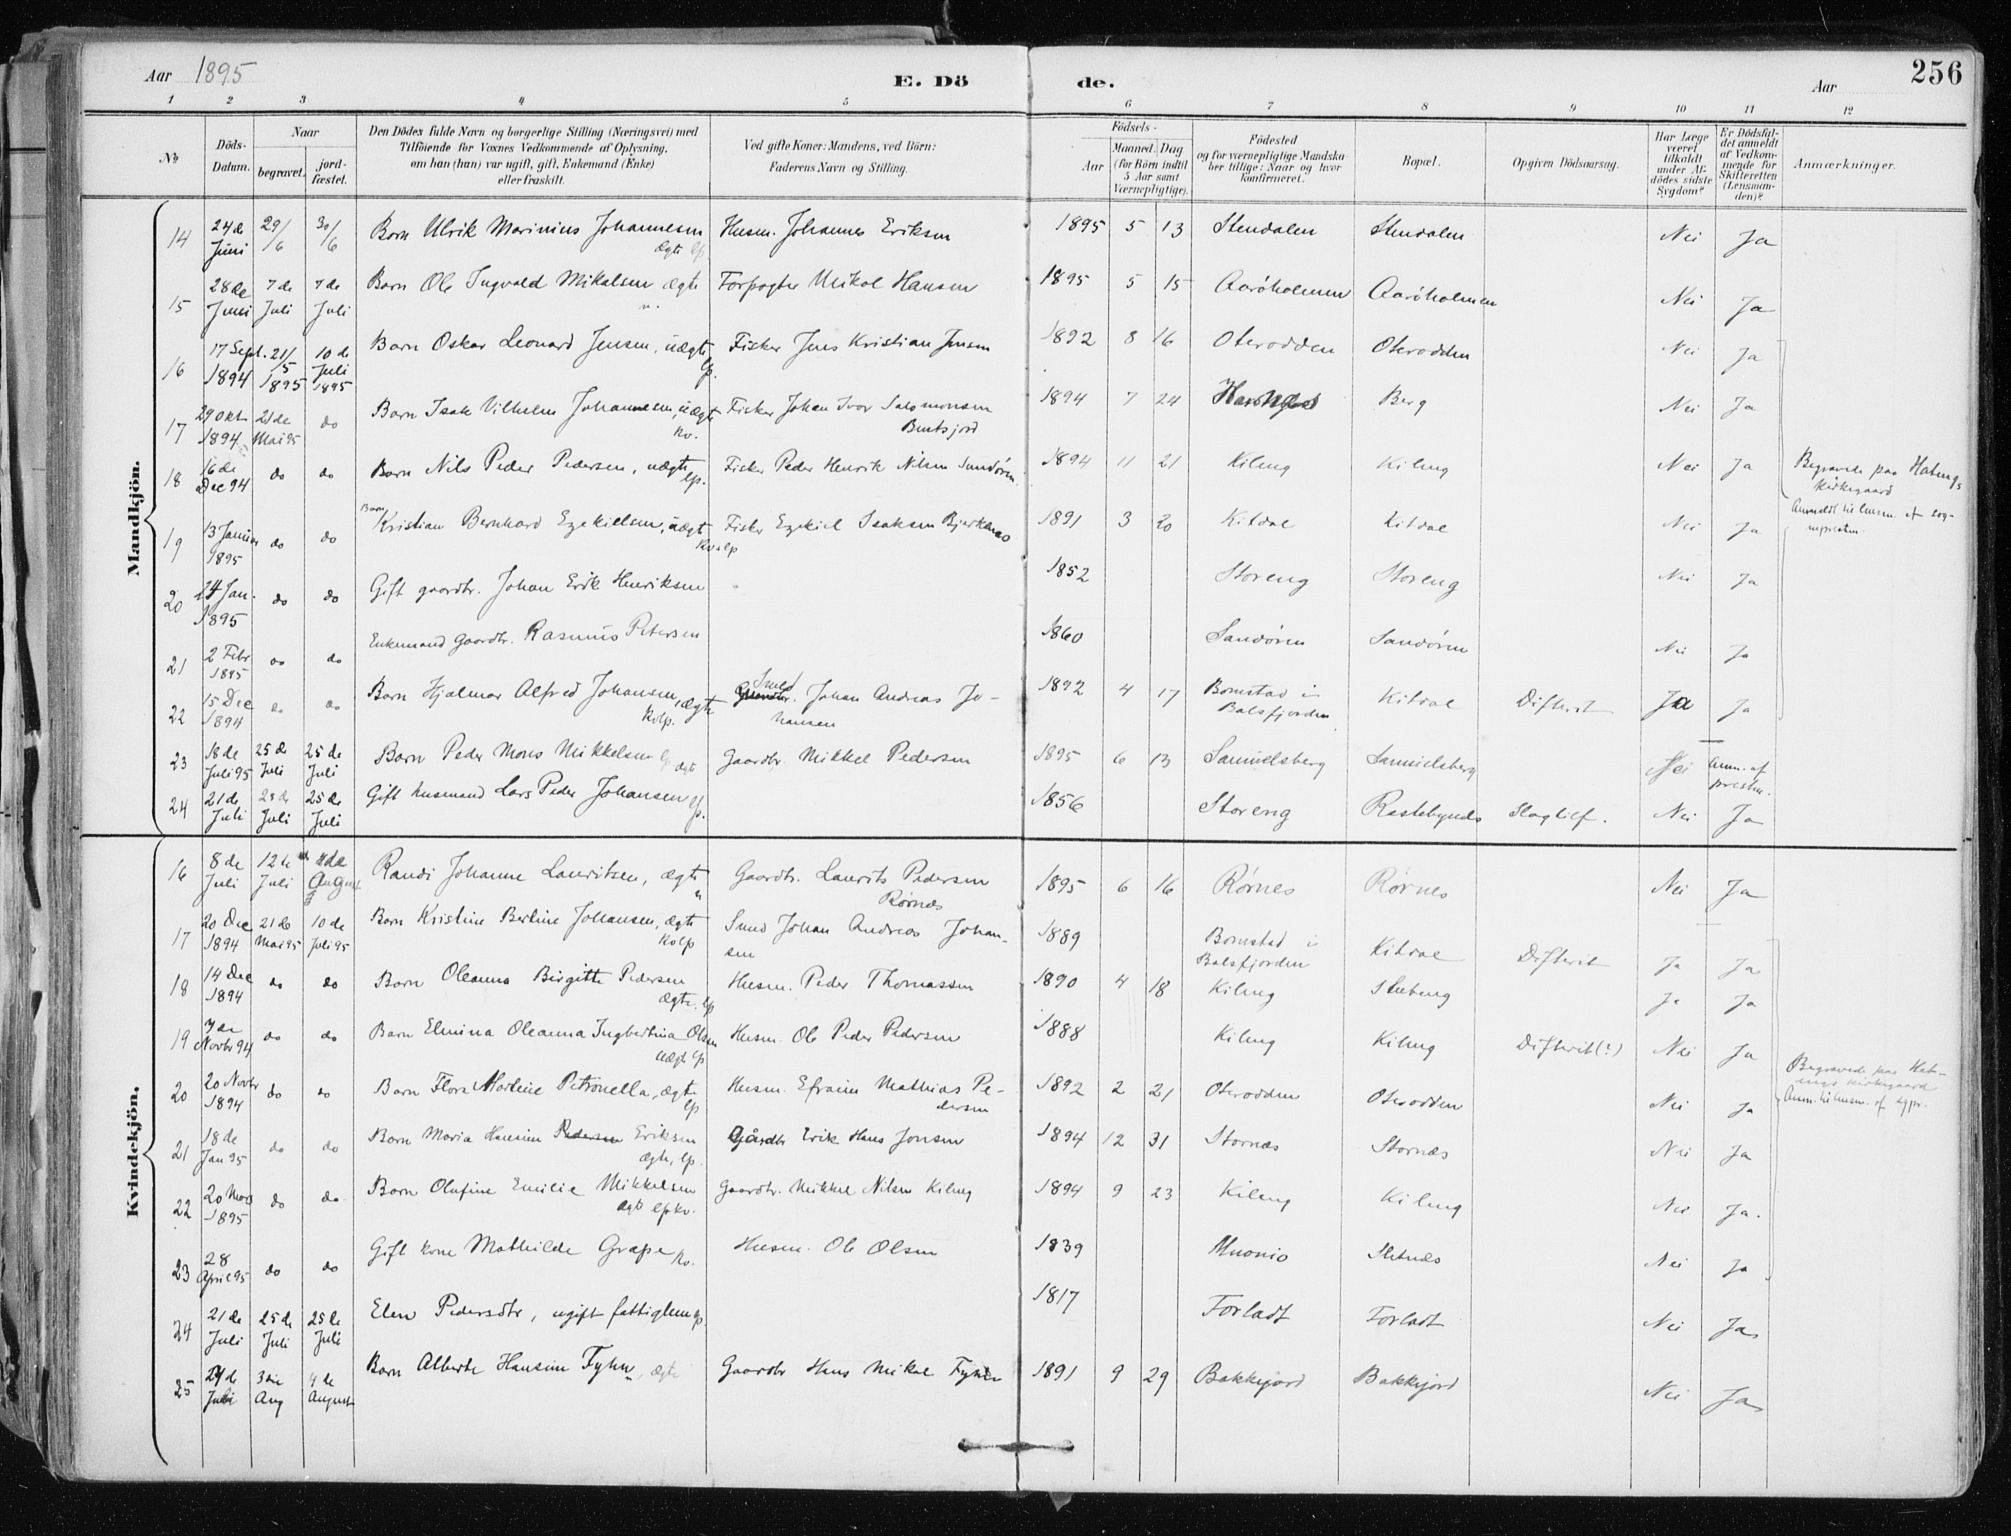 Aar 1895
E. Dö de.
Aar
256
1 2 3 4 5 6 7 8 9 10 11 12
№
Döds-Datum.
Naar
begravet.
jord-fæstet.
Den Dödes fulde Navn og borgerlige Stilling (Næringsvei) med
Tilföiende for Voxnes Vedkommende af Oplysning,
om han (hun) var ugift, gift, Enkemand (Enke)
eller fraskilt.
Ved gifte Koner: Mandens, ved Börn:
Faderens Navn og Stilling.
Födsels-
Aar
Maaned. Dag
(for Börn indtil
5 Aar samt
Værnepligtige).
Födested
og for værnepligtige Mandska-
ber tillige: Naar og hvor
konfirmeret.
Bopæl.
Opgiven Dödsaarsag.
Har Læge
været
tilkaldt
under Af-
dödes sidste
Sygdom?
Er Dödsfal-
det anmeldt
af Vedkom-
mende for
Skifteretten
(Lensman-
den)?
Anmærkninger.
Mandkjön.
14 24de Juni 29/6 30/6 Barn Ulrik Marinius Johannesen ægte lp Husm. Johannes Eriksen 1895 5 13 Stendalen Stendalen Nei Ja
15 28de Juni 7de Juli 7de Juli Barn Ole Ingvald Mikalsen ægte n. Forpagter Mikal Hansen 1895 5 15 Aaröholmen Aaröholmen Nei Ja
16 17 Sept. 1894 21/5 1895 10de Juli 1895 Barn Oskar Leonard Jensen, uægte lp. Fisker Jens Kristian Jensen 1892 8 16 Oterodden Oterodden Nei Ja
17 29 Okt 1894 21de Mai 95 do Barn Isak Vilhelm Johannesen, uægte kv. Fisker Johan Ivar Salomonsen 1894 7 24 Berg Nei Ja
18 16de Dec 94 do do Barn Nils Peder Pedersen, uægte lp. Fisker Peder Henrik Nilsen Sandören 1894 11 21 Kileng Kileng Nei Ja
Begravede paa Hatengs
Kirkegaard
19 13 Januar 1895 do do Barn Kristian Bernhard Ezekielsen, uægte Kvelp Fisker Ezekiel Isaksen Bjerknæs 1891 3 20 Kitdal Kitdal Nei Ja
20 24 Jan. 1895 do do Gift gaardbr. Johan Erik Henriksen 1852 Storeng Storeng Nei Ja
21 2 Febr 1895 do do Enkemand Gaardbr. Rasmus Petersen 1860 Sandören Sandören Nei Ja
22 15 Dec 1894 do do Barn Hjalmar Alfred Johansen, ægte Kvlp. Smed Johan Andreas Jo-
hansen 1892 4 17 Bomstad i Balsfjorden Kitdal Difterit Ja Ja
23 18de Juli 95 25de Juli 25de Juli Barn Peder Mons Mikkelsen lp ægte Gaardbr. Mikkel Pedersen 1895 6 13 Samuelsberg Samuelsberg Nei Anm. af presten.
24 21de Juli 25de Juli 25de Juli Gift husmand Lars Peder Johansen lp. 1856 Storeng Rastebynds Slagtilf. Nei Ja
Kvindekjön.
16 8de Juli 12te Juli 4de August Randi Johanne Lauritsen, ægte n Gaardbr. Laurits Pedersen Rörnes 1895 6 16 Rörnes Rörnes Nei Ja
17 20 Dec 1894 21de Mai 95 10de Juli 95 Barn Kristine Bertine Johansen, ægte Kvlp Smed Johan Andreas Johan-
sen 1889 Bomstad i Balsfjorden Kitdal Difterit Ja Ja
18 14 Dec 1894 do do Barn Oleanna Birgitte Pedersen ægte lp Husm. Peder Thomassen 1890 4 18 Kileng Ja Ja
19 7de Novbr 94 do do Barn Elmina Oleanna Ingbertina Olsen uægte lp Husm. Ole Peder Pedersen 1888 Kileng Kileng Difterit(?) Nei Ja
20 20 Novbr 1894 do do Barn Flora Marleine Petronella, ægte lp Husm. Efraim Mathias Pe-
dersen 1892 2 21 Oterodden Oterodden Nei Ja
Begravede paa Hat-
engs Kirkegaard
21 18de Jan 95 do do Barn Maria Hansine Pedersen Eriksen ægte, lp. Gårdbr Erik Hans Jensen 1894 12 31 Stornæs Stornæs Nei Ja
22 20 Mars 1895 do do Barn Olufine Emilie Mikkelsen ægte lpkv. Gaardbr. Mikkel Nilsen Kileng 1894 9 23 Kileng Kileng Nei Ja.
23 28 April 95 do do Gift kone Mathilde Grape kv. Husm. Ole Olsen 1839 Muonio Nei Ja
24 21de Juli 25de Juli 25de Juli Elen Pedersdtr, ugift fattiglem lp. 1817 Forladt Forladt Nei Ja
25 29de Juli 3die Aug 4de August Barn Alberte Hansine Fyhn, ægte Gaardbr Hans Mikal Fyhn 1891 9 29 Bakkejord Bakkejord Nei Ja